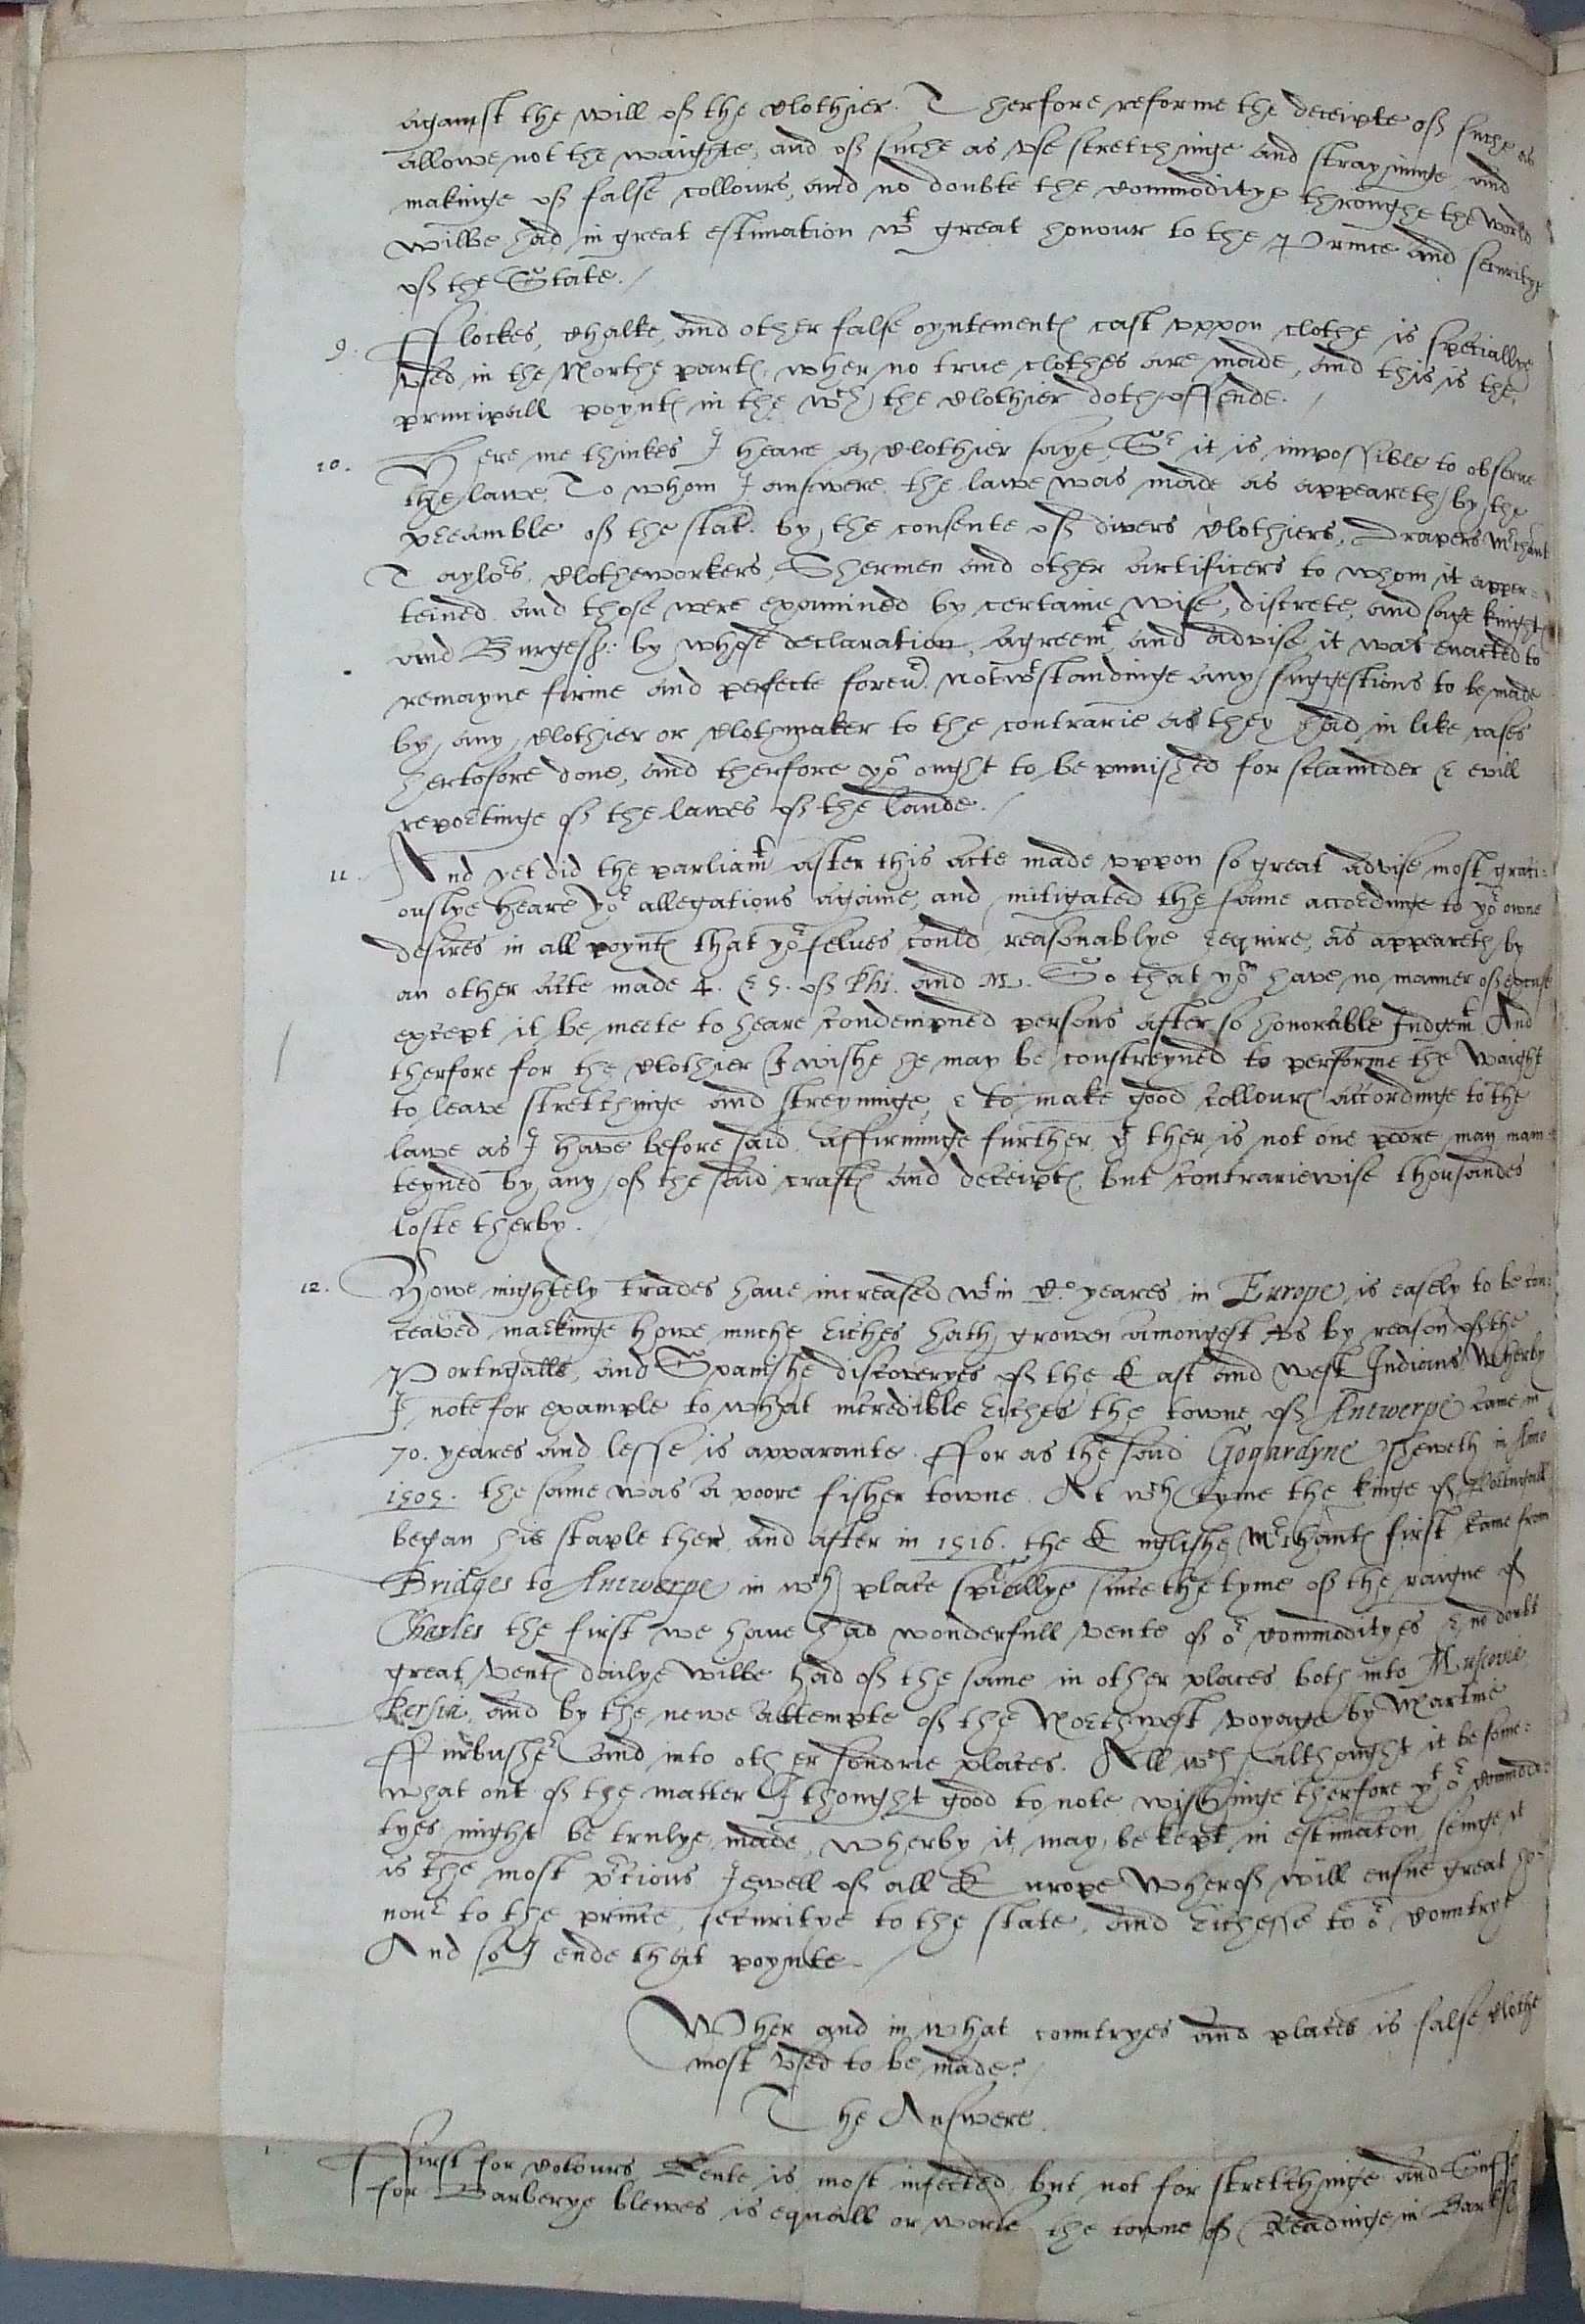 against the will off the Clothier. Therfore reforme the deceipte off suche as
allowe not the waighte, and off suche as vse stretchinge and strayninge, and
makinge off false collours, and no doubte the commoditye throughe the World
wilbe had in great estimation wt great honour to the Prince and securitye
off the State./
9. Flockes, Chalke, and other false oyntementes cast vppon clothe is speciallye
vsed in the Northe partes, wher no true clothes are made, and this is the
principall poyntes in the wch the Clothier doth offende./
10. Here me thinkes I heare a Clothier saye, Sr it is impossible to observe
the lawe. To whom I answere, the lawe was made as appeareth by the
preamble off the stat. by the consente off divers Clothiers, Drapers Mrchant
Taylors, Clotheworkers, Shermen and other artificers to whom it apper=
teined and those were examined by certaine wise, discrete, and sage knightes
and Burgess: by whose declaration, agreemt and advise it was enacted to
remayne firme and perfecte foreu'. notwtstandinge any suggestions to be made
by any Clothier or Clothmaker to the contrarie as they had in like cases
hertofore done, and therfore yo ought to be punished for sclaunder & evill
reportinge off the lawes off the lande./
11. And yet did the parliamt after this acte made vppon so great advise most grati=
ouslye heare yor allegations againe, and mitigated the same accordinge to yor owne
desires in all poyntes that yorselues could reasonablye require, as appeareth by
an other acte made 4. & 5. off Phi. and M. So that yo have no manner off excuse
except it be meete to heare condempned persons after so honorable Judgemt And
therfore for the Clothier I wishe he may be constreyned to performe the Waight
to leave stretchinge and streyninge, & to make good collours accordinge to the
lawe as I have before said. affirminge further yt ther is not one poore man main=
teyned by any off the said craftes and deceiptes. but contrariewise thousandes
loste therby./
12. Howe mightely trades haue increased wtin C. yeares in Europe is easely to be con=
ceaved, markinge howe muche riches hath growen amongest vs by reason off the
Portugalls, and Spanishe discoveryes off the East and West Indians, Wherby
I note for example to what incredible riches the towne off Antwerpe came in
70. yeares and lesse is apparante. ffor as the said Gogurdyne sheweth in Anno
1505. the same was a poore fisher towne. At wch tyme the kinge off Portugall
began his staple ther, and after in 1516. the Englishe Mrchantes first came from
Bridges to Antwerpe in wch place speciallye since the tyme off the raigne off
Charles the first we haue had wonderfull vente off or commodityes & no doubt
great ventes dailye wilbe had off the same in other places, both into Muscovie,
Persia, and by the newe attempte off the Northwest voyage by Martine
Furbusher and into other sondrie places. All wch althought it be some=
what out off the matter I thought good to note, wishinge therfore yt or commodi=
tyes might be trulye made, wherby it may be kept in estimaton, seinge it
is the most p'tious Jewell off all Europe Wheroff will ensue great ho=
nour to the prince, securitye to the state, and richesse to or Countrye
And so I ende that poynte./
Wher and in what countryes and places is false Clothe
most vsed to be made?
The Answere.
1 First for Colours Kente is most infected, but not for stretchinge and Suff:
for Barberye blewes is equall or worse the towne off Readinge in Barks